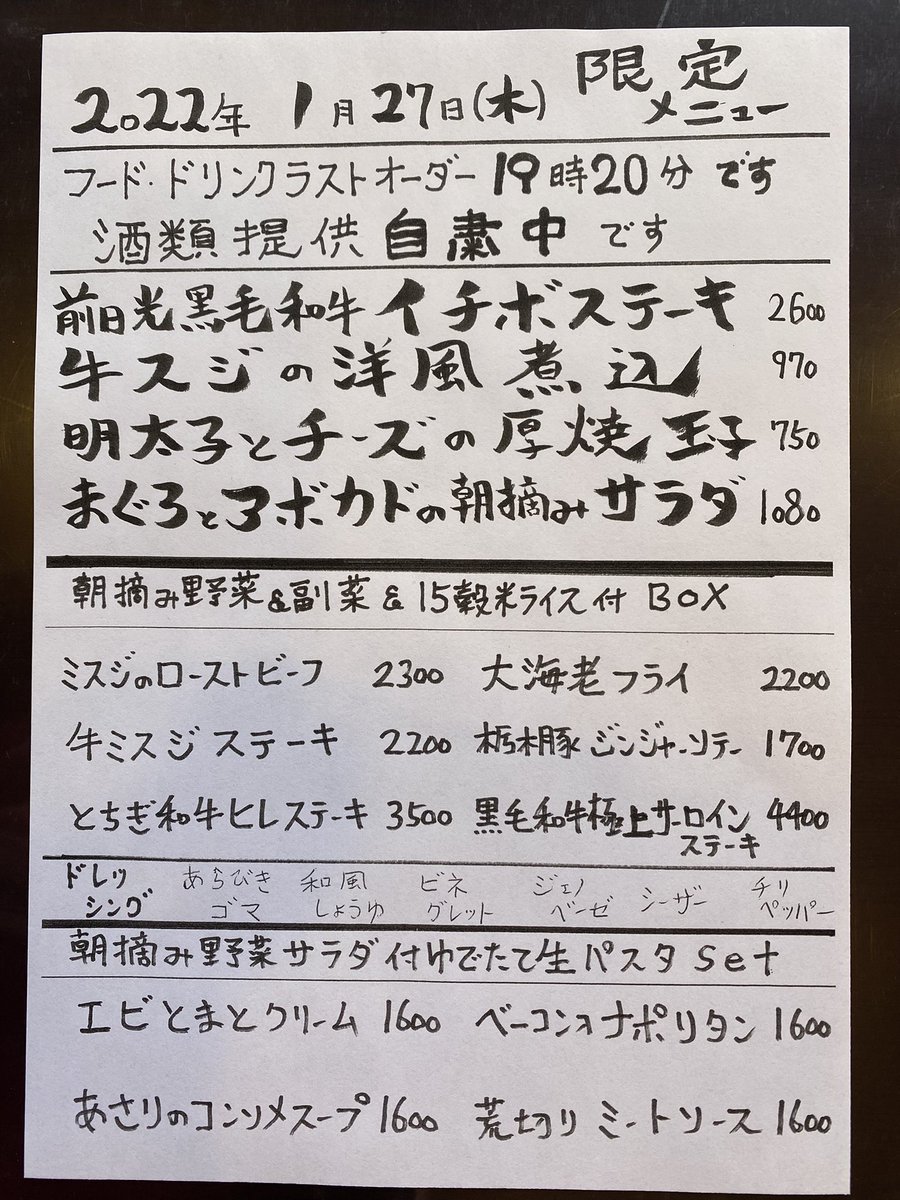 2022年 1月27日(木) 限定メニュー
フード・ドリンクラストオーダー 19時20分です
酒類提供 自粛中 です
前日光黒毛和牛 イチボステーキ 2600
牛スジの洋風煮込 970
明太子とチーズの厚焼玉子 750
まぐろとアボカドの朝摘みサラダ 1080
朝摘み野菜&副菜&15穀米ライス付 BOX
ミスジのローストビーフ 2300 大海老フライ 2200
牛ミスジステーキ 2200 栃木豚ジンジャーソテー 1700
とちぎ和牛ヒレステーキ 3500 黒毛和牛極上サーロインステーキ 4400
ドレッシング あらびきゴマ 和風しょうゆ ビネグレット ジェノベーゼ シーザー チリペッパー
朝摘み野菜サラダ付ゆでたて生パスタ Set
エビとまとクリーム 1600 ベーコンのナポリタン 1600
あさりのコンソメスープ 1600 荒切りミートソース 1600